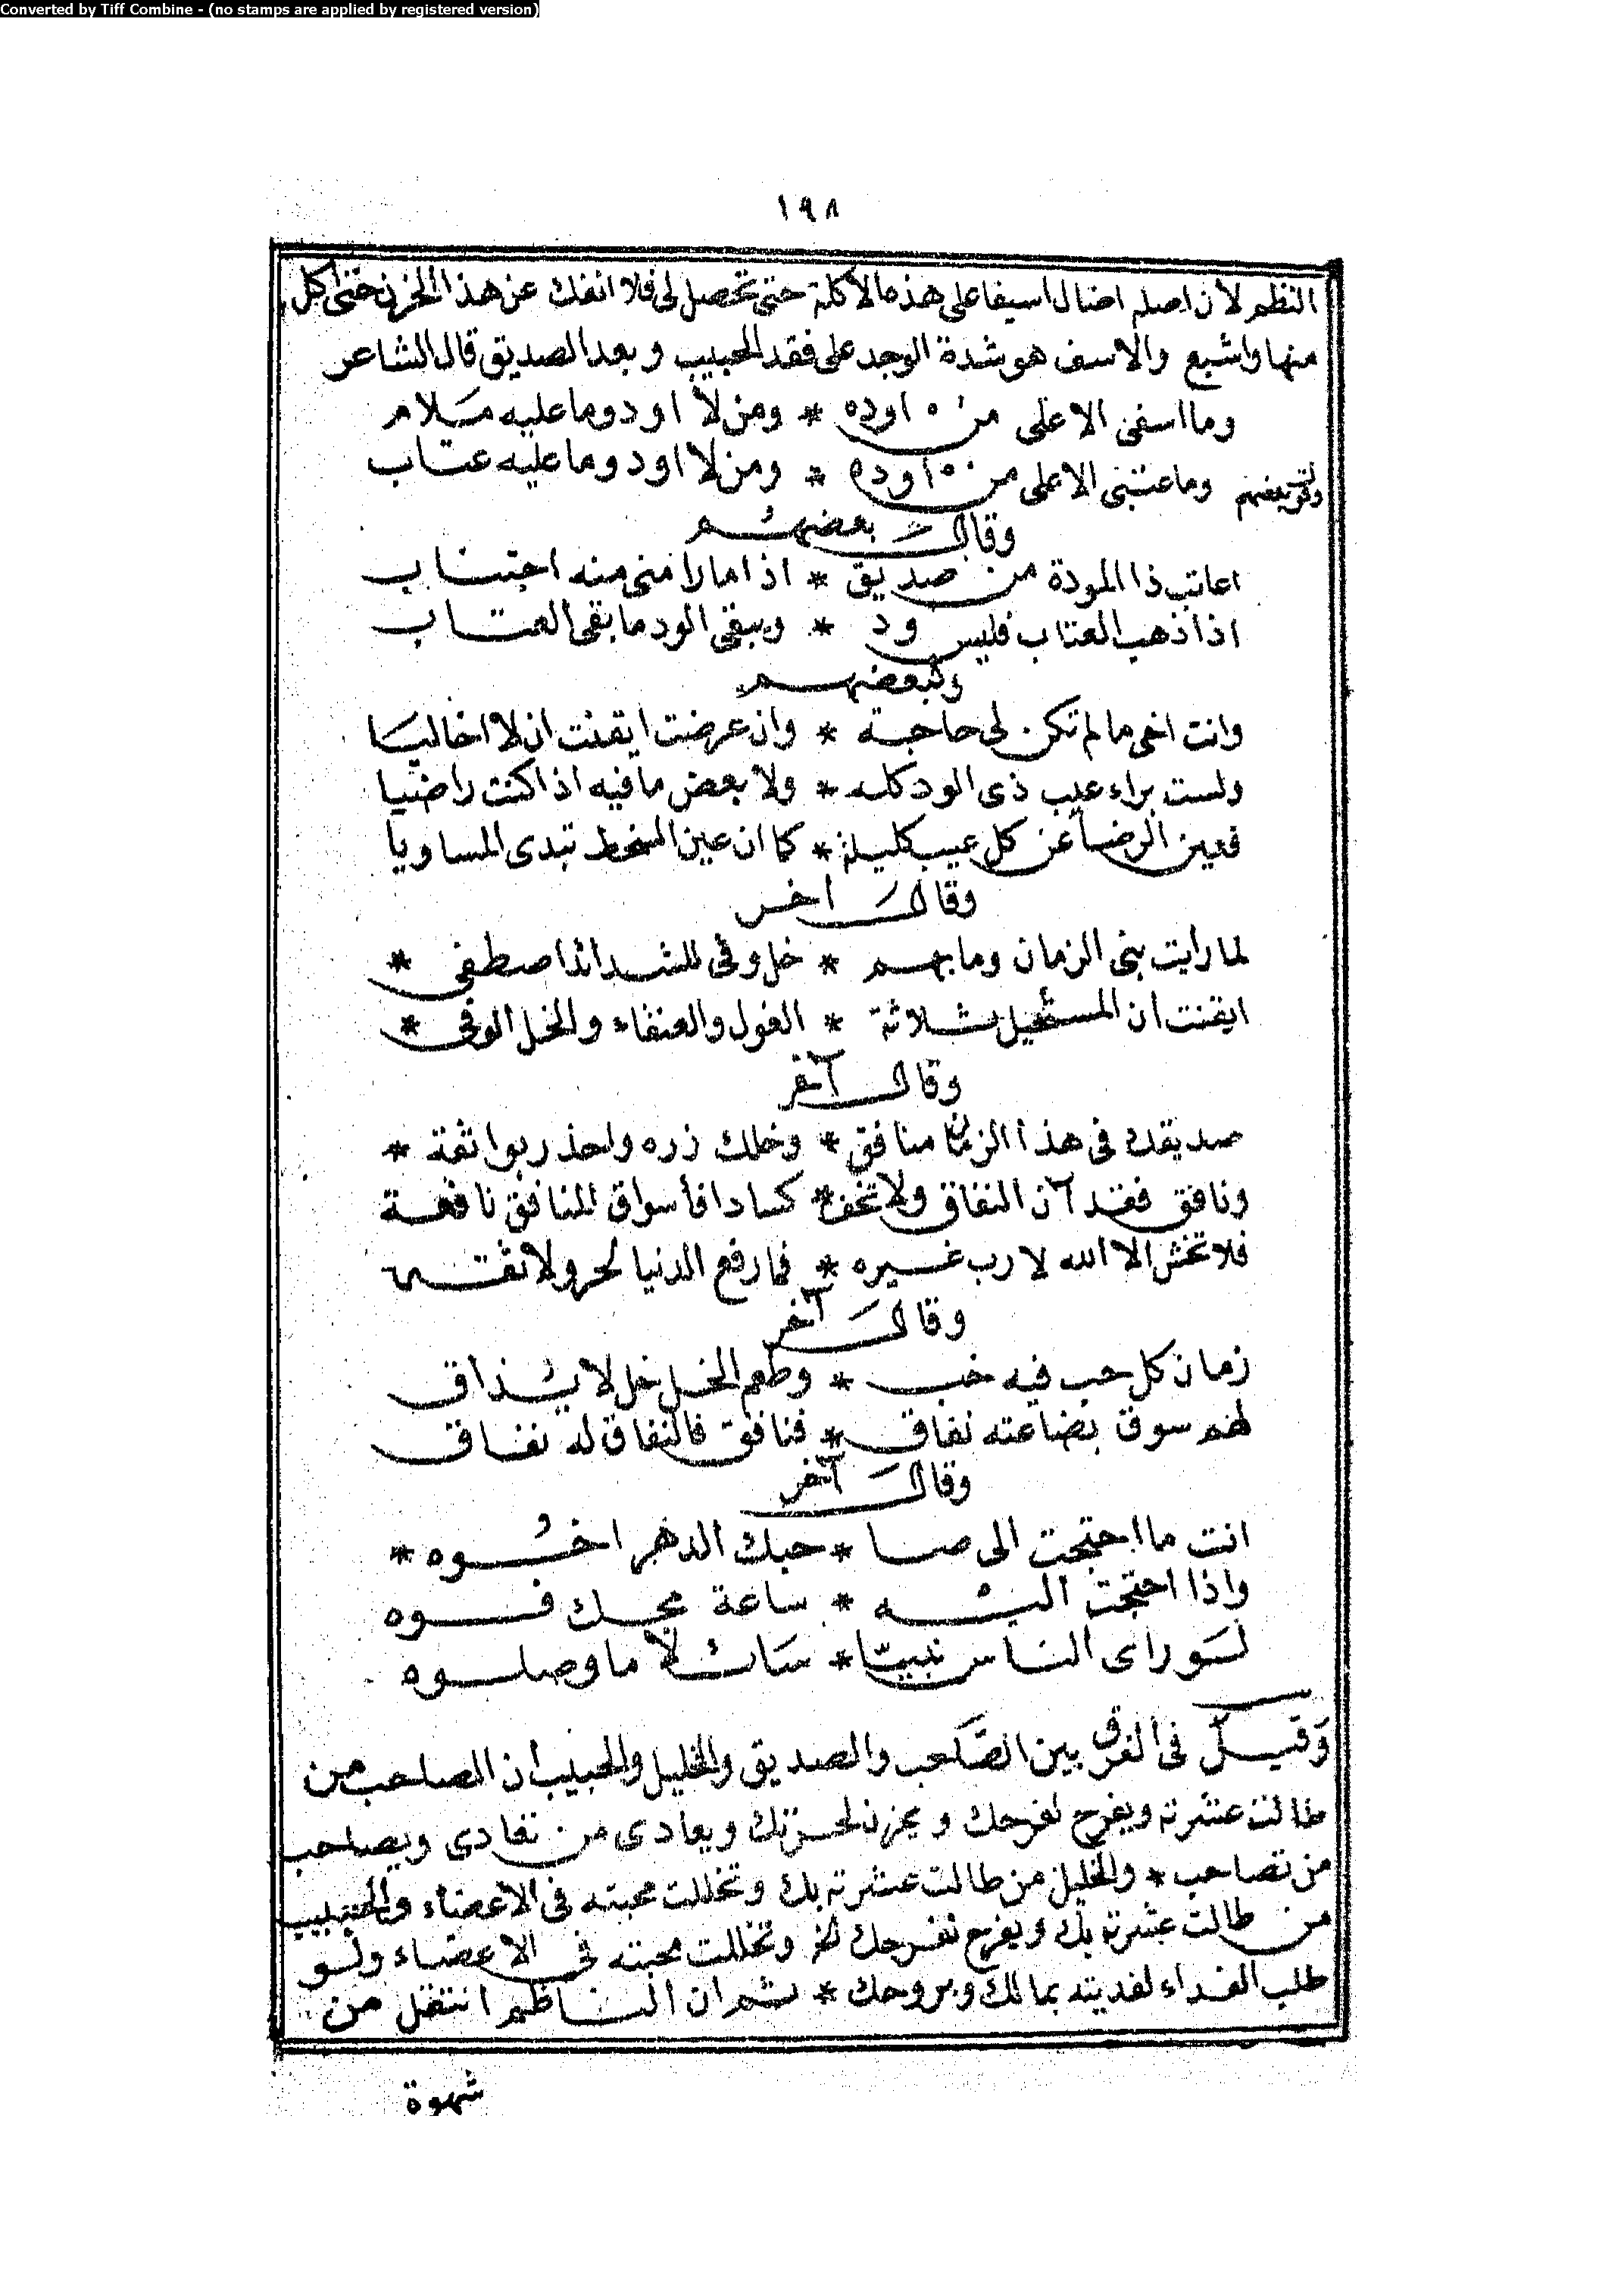 Converted by Tiff Combine - (no stamps are applied by registered version)
١٩٨
النظم لان اصله اضال اسيفا على هذه الاكلة حتى تحصل لى فلا انفك عن هذا الحزن حتى اكل
منها واشبع والاسف هو شدة الوجد على فقد الحبيب وبعد الصديق قال الشاعر
وما اسفى الا على من اوده * ومن لا اود وما عليه مَلام
وما عتبى الا على من اوده * ومن لا اود وما عليه عتاب
وقال بعضهم
اعاتب ذا المودة من صديق * اذا ما رامنى منه اجتناب
اذا ذهب العتاب فليس ود * ويبقى الود ما بقى العتاب
ولبعضهم
وانت اخى ما لم تكن لى حاجة * وان عرضت ايقنت ان لا اخا ليا
ولست براء عيب ذى الود كله * ولا بعض ما فيه اذا كنت راضيا
فعين الرضا عن كل عيب كليلة * كما ان عين السخط تبدى المساويا
وقال اخر
لما رايت بنى الزمان وما بهم * خل وفى للشدائد اصطفى *
ايقنت ان المستحيل ثلاثة * الغول والعنقاء والخل الوفى *
وقال آخر
صديقك فى هذا الزمان منافق * وخلك زره واحذر بوائقه *
ونافق فقد آن النفاق ولا تخف * كسادا فأسواق المنافق نافقة
فلا تخش الا الله لا رب غيره * فما رفع الدنيا لحر ولا ثقه
وقال آخر
زمان كل حب فيه خب * وطعم الخل خل لا يذاق
لهم سوق بضاعته نفاق * فنافق فالنفاق له نفاق
وقال آخر
انت ما احتجت الى صا * حبك الدهر اخُوه *
واذا احتجت اليه * ساعة مجك فوه
لَو راى الناس نبيّا * سَائلا ما وصلوه
وَقيل فى الفرق بين الصَّاحب والصديق والخليل والحبيب ان الصاحب من
طالت عشرته ويفرح لفرحك ويحزن لحزنك ويعادى من تعادى ويصاحب
من تصاحب * والخليل من طالت عشرته بك وتخللت محبته فى الاعضاء والحبيب
من طالت عشرته بك ويفرح لفرحك الخ وتخللت محبته فى الاعضاء ولو
طلب الفداء لفديته بمالك وبروحك * ثم ان الناظم انتقل من
شهوة